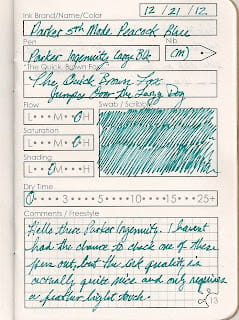 Ink Brand/Name/Color
12 / 21 / 12
Parker 5th Mode Peacock Blue
Pen
Nib
Parker Ingenuity Large Blk
(M)
"The Quick, Brown Fox"
The Quick Brown Fox
Jumps Over the Lazy Dog
Flow
Swab / Scribble
L M H
Saturation
L M H
Shading
L M H
Dry Time
0 3 5 10 15 25+
Comments / Freestyle
Hello there Parker Ingenuity. I havent
had the chance to check one of these
pens out, but the ink quality is
actually quite nice and only requires
a feather light touch.
13